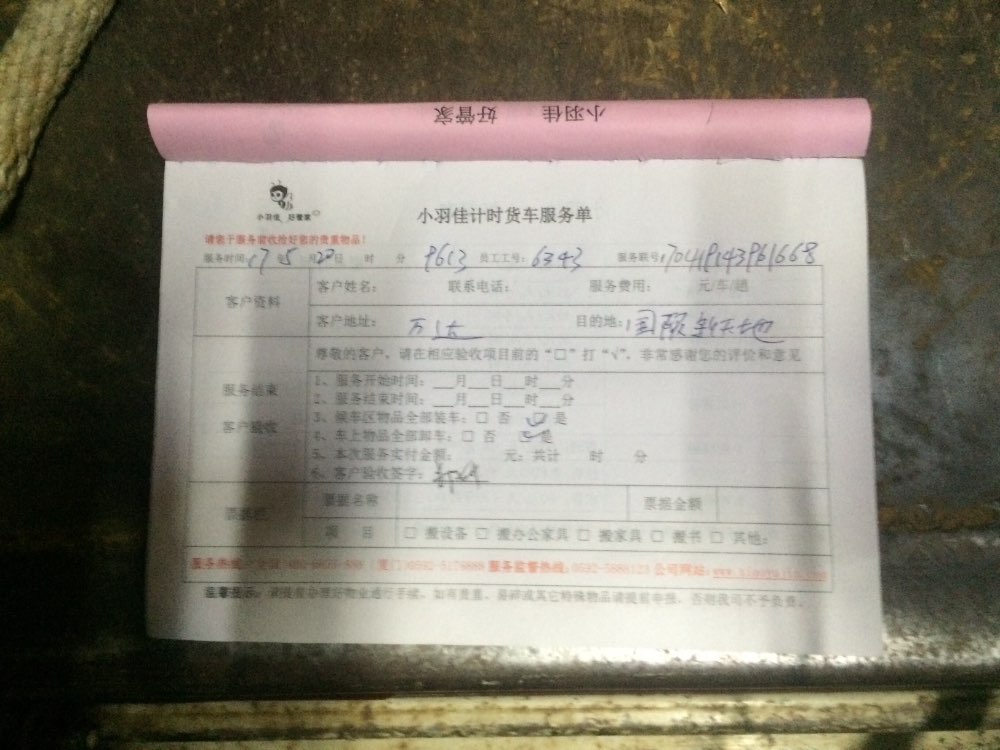 小羽佳 好管家
小羽佳 好管家
小羽佳计时货车服务单
请您于服务前收拾好您的贵重物品!
服务时间:17年5月20日 时 分 9613 员工工号:6343 服务联号:
客户资料
客户姓名: 联系电话: 服务费用: 元/车/趟
客户地址: 万达 目的地: 国贸新天地
尊敬的客户,请在相应验收项目前的“□”打“√”,非常感谢您的评价和意见
服务结束
客户验收
1、服务开始时间:__月__日__时__分
2、服务结束时间:__月__日__时__分
3、候车区物品全部装车:□ 否 ☑ 是
4、车上物品全部卸车:□ 否 ☑ 是
5、本次服务实付金额: 元;共计 时 分
6、客户验收签字:
票据名称 票据金额
项 目 □ 搬设备 □ 搬办公家具 □ 搬家具 □ 搬书 □ 其他:
服务热线: 服务监督热线:0592-5888123 公司网站:
温馨提示: 如有贵重、易碎或其它特殊物品请提前申报,否则我司不予负责。